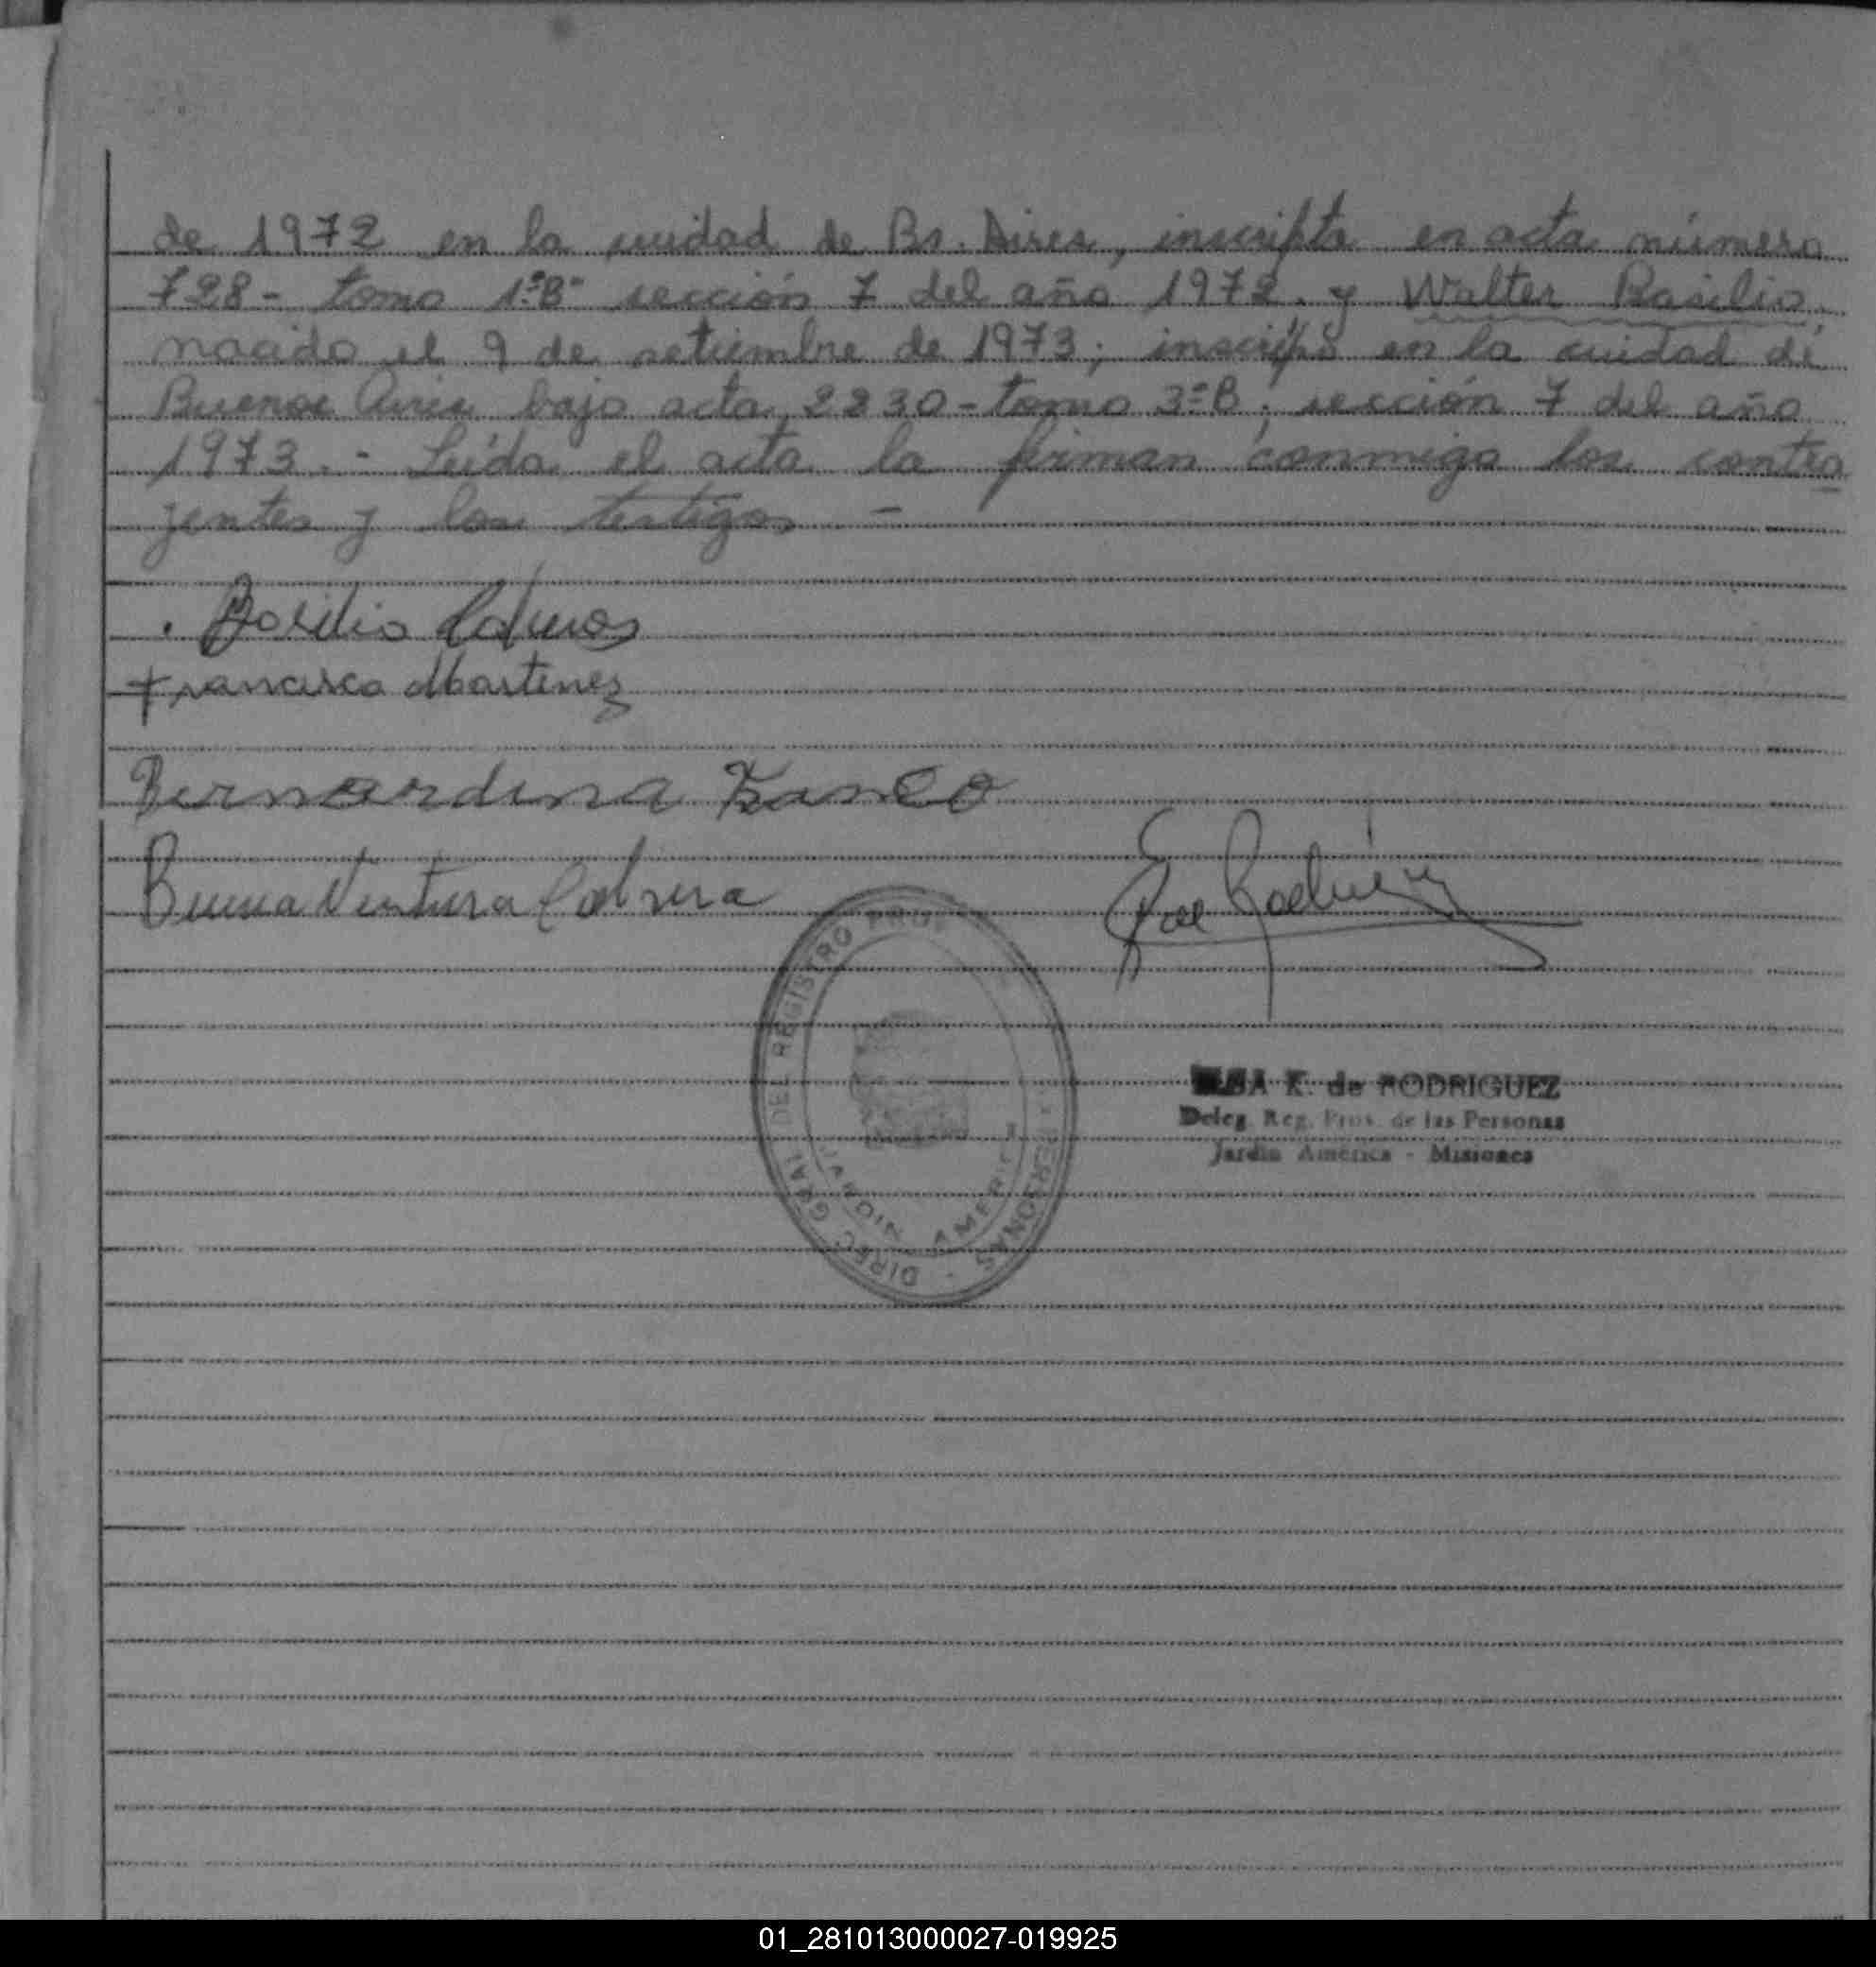 de 1972 en la ciudad de Bs. Aires, inscripta en acta número
728 - tomo 1º B - sección 7 del año 1972. y Walter Basilio,
nacido el 9 de setiembre de 1973; inscripto en la ciudad de
Buenos Aires bajo acta 2230 - tomo 3º B, sección 7 del año
1973. - Leída el acta la firman conmigo los contra
yentes y los testigos -
Basilio
Francisca Martinez
Bernardina Franco
Buena Ventura Cabrera
DIREC. GRAL. DEL REGISTRO PROV. PERSONAS
AMERICA
K. de RODRIGUEZ
Deleg. Reg. Prov. de las Personas
Jardín América - Misiones
01_281013000027-019925